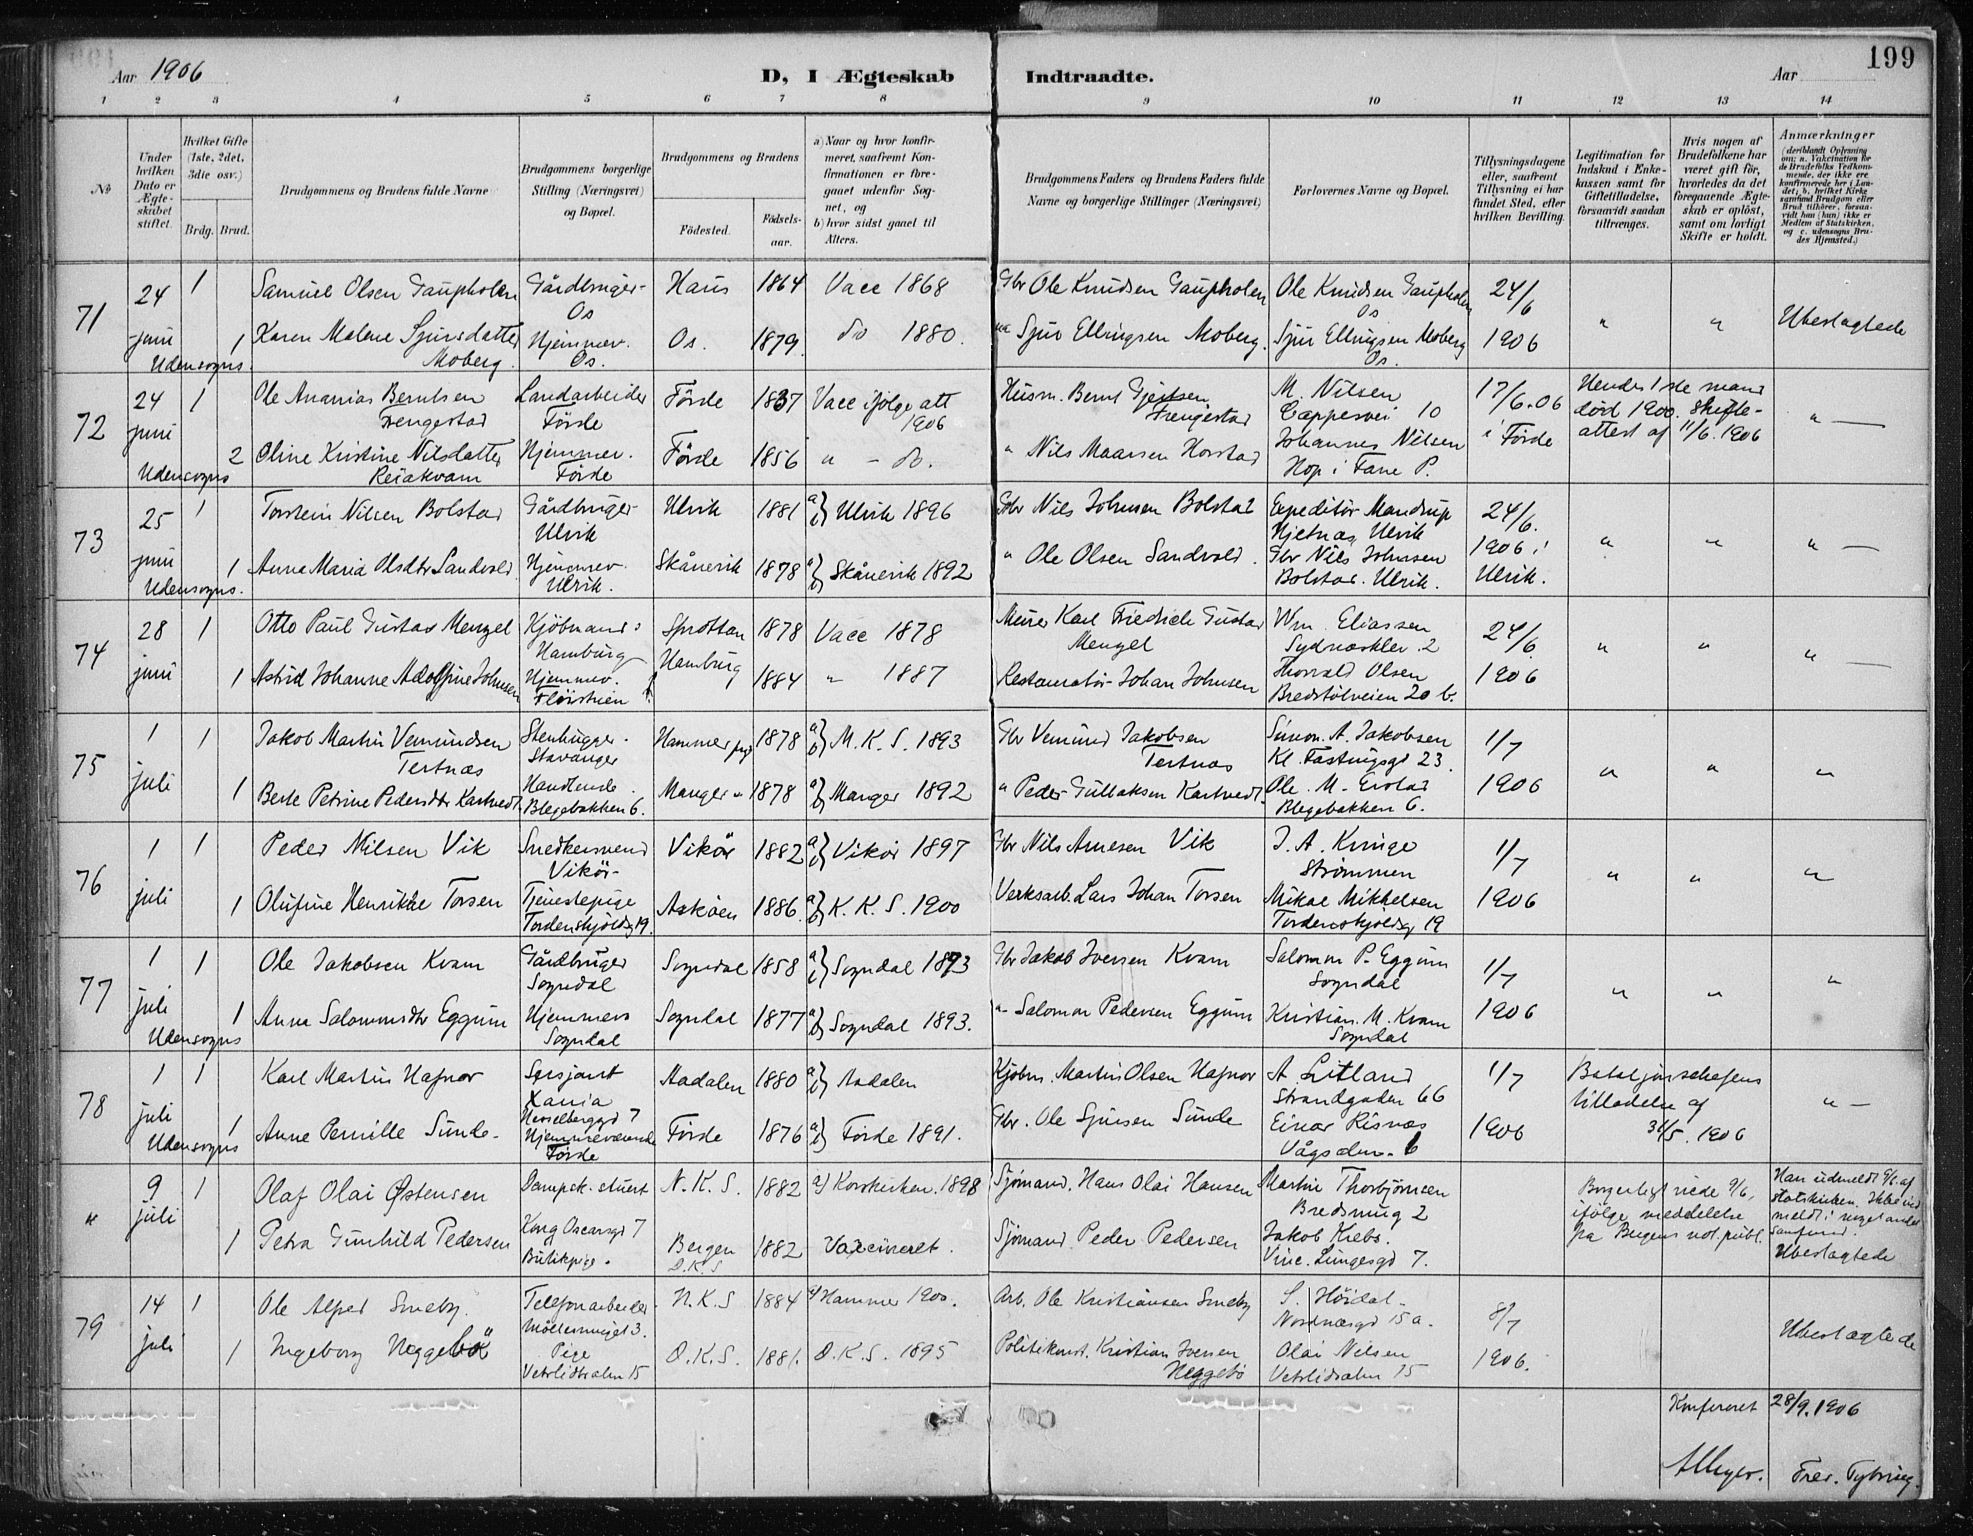 Aar 1906
D, I Ægteskab
Indtraadte.
Aar
199
1 2 3 4 5 6 7 8 9 10 11 12 13 14
№
Under hvilken Dato er Ægteskabet stiftet.
Hvilket Gifte (1ste, 2det, 3die osv.)
Brdg. Brud.
Brudgommens og Brudens fulde Navne
Brudgommens borgerlige Stilling (Næringsvei) og Bopæl.
Brudgommens og Brudens
Fødested. Fødselsaar.
a) Naar og hvor konfirmeret, saafremt Konfirmationen er foregaaet udenfor Sognet, og
b) hvor sidst gaaet til Alters.
Brudgommens Faders og Brudens Faders fulde Navne og borgerlige Stillinger (Næringsvei)
Forlovernes Navne og Bopæl.
Tillysningsdagene eller, saafremt Tillysning ei har fundet Sted, efter hvilken Bevilling.
Legitimation for Indskud i Enkekassen samt for Giftetilladelse, forsaavidt saadan tiltrænges.
Hvis nogen af Brudefolkene har været gift før, hvorledes da det foregaaende Ægteskab er opløst, samt om lovligt Skifte er holdt.
Anmærkninger
71 24 juni Udensogns.
1 Samuel Olsen Gaupholm Gårdbruger Os Haus 1864 Vacc 1868 Gbr Ole Knudsen Gaupholm Ole Knudsen Gaupholm Os 24/6 " " Ubeslægtede
1 Karen Malene Sjursdatter Moberg. Hjemmev. Os. Os. 1879. do 1880. Sjur Ellingsen Moberg. Sjur Ellingsen Moberg Os. 1906
72 24 juni Udensogns
1 Ole Ananias Berntsen Frengestad Landarbeider Førde Förde 1837 Vacc ifølge att 1906 Husm. Bernt Gjertsen Frengestad M. Nilsen Cappesvei 10 17/6.06 Hendes 1ste mand død 1900. Skifteattest af 11/6.1906 " —
2 Oline Kristine Nilsdatter Hjemmev. Førde Förde 1856 " - do. " Nils Maarsen Horstad Johannes Nilsen Hop i Fane P. i Förde
73 25 juni Udensogns.
1 Torstein Nilsen Bolstad Gårdbruger Ulvik Ulvik 1881 a) b) Ulvik 1896 Gbr Nils Johnsen Bolstad Expeditör Mandrup Hjetnæs, Ulvik 24/6. " " " —
1 Anna Maria Olsdtr Sandvold Hjemmev. Ulvik. Skånevik 1878 a) b) Skånevik 1892 " Ole Olsen Sandvold. Gbr Nils Johnsen Bolstad. Ulvik. 1906 i Ulvik.
74 28 juni
1 Otto Paul Gustav Menzel Kjöbmand: Hamburg Sprottau 1878 Vacc 1878 Murer Karl Friedrich Gustav Menzel Wm. Eliassen Sydnæskler. 2 24/6 " " " —
1 Astrid Johanne Adolfine Johnsen Hjemmev. Fløistuen Hamburg 1884 " 1887 Restauratör Johan Johnsen Thorvald Olsen Bredstölveien 20 b. 1906
75 1 juli
1 Jakob Martin Vemundsen Tertnæs Stenhugger. Stavanger Hammer 1878 a) b) M.K.S. 1893 Gbr Vemund Jakobsen Tertnæs Simon. A. Jakobsen Kl. Fastingsgd 23. 1/7 " " "
1 Berte Petrine Pedersdtr Kartvedt Handlende. Blegebakken 6. Manger " 1878 a) b) Manger 1892 " Peder Gullaksen Kartvedt. Ole. M. Blegebakken 6. 1906
76 1 juli
1 Peder Nilsen Vik Snedkersvend Vikör Vikör 1882 a) b) Vikör 1897 Gbr Nils Arnesen Vik J. A. Kvinge Strömmen 1/7 " " "
1 Olufine Henrikke Torsen Tjenestepige Tordenskjöldsg 19. Askøen 1886. a) b) K.K.S. 1900 Verksarb. Lars Johan Torsen Mikal Mikkelsen Tordenskjöldsg 19 1906
77 1 juli Udensogns
1 Ole Jakobsen Kvam Gårdbruger Sogndal Sogndal 1858 a) b) Sogndal 1873 Gbr Jakob Iversen Kvam Salomon P. Eggum Sogndal 1/7 " " "
1 Anna Salomonsdtr Eggum Hjemmev Sogndal Sogndal 1877 a) b) Sogndal 1893. " Salomon Pedersen Eggum Kristian. M. Kvam Sogndal 1906
78 1 juli Udensogns
1 Karl Martin Hafnor Sersjant Xania Hesselbergsgd 7 Aadalen 1880 a) b) Aadalen Kjöbm. Martin Olsen Hafnor A. Litland Strandgaden 66 1/7 Bataljonschefens tilladelse af 31/5.1906 " —
1 Anne Pernille Sunde. Hjemmeværende Førde Förde 1876 a) b) Förde 1891. Gbr. Ole Sjursen Sunde Einar Risnæs Vågsalm. 6 1906
" 9 juli
1 Olaf Olai Østensen Dampsk. stuert Kong Oscarsgd 7 N.K.S. 1882 a) Korskirken. 1898 Sjømand. Hans Olai Hansen Martin Thorbjörnsen Bredsmug 2 Borgerligt viede 9/6, ifölge meddelelse fra Bergens not. publ. Han udmeldt 9/6 af statskirken. Ikke indmeldt i noget andet samfund. Ubeslægtede
1 Petra Gunhild Pedersen Butikpige. Bergen D.K.S 1882 Vaxcineret. Sjömand. Peder Pedersen Jakob Krebs. Vinc. Lungesgd 7.
79 14 juli
1 Ole Alfred Smeby. Telefonarbeider Möllesmuget 3. N.K.S 1884 a) Hammer 1900. Arb. Ole Kristiansen Smeby S. Höidal. Nordnæsgd 15 a. 8/7 Ubeslægtede
1 Ingeborg Neggebö Pige Vetrlidsalm 15 D.K.S. 1881. D.K.S. 1895 Politikonst. Kristian Iversen Neggebö Olai Nilsen Vetrlidsalm 15 1906.
Konfereret 28/9.1906
AMeyer. Fred. Tybring.